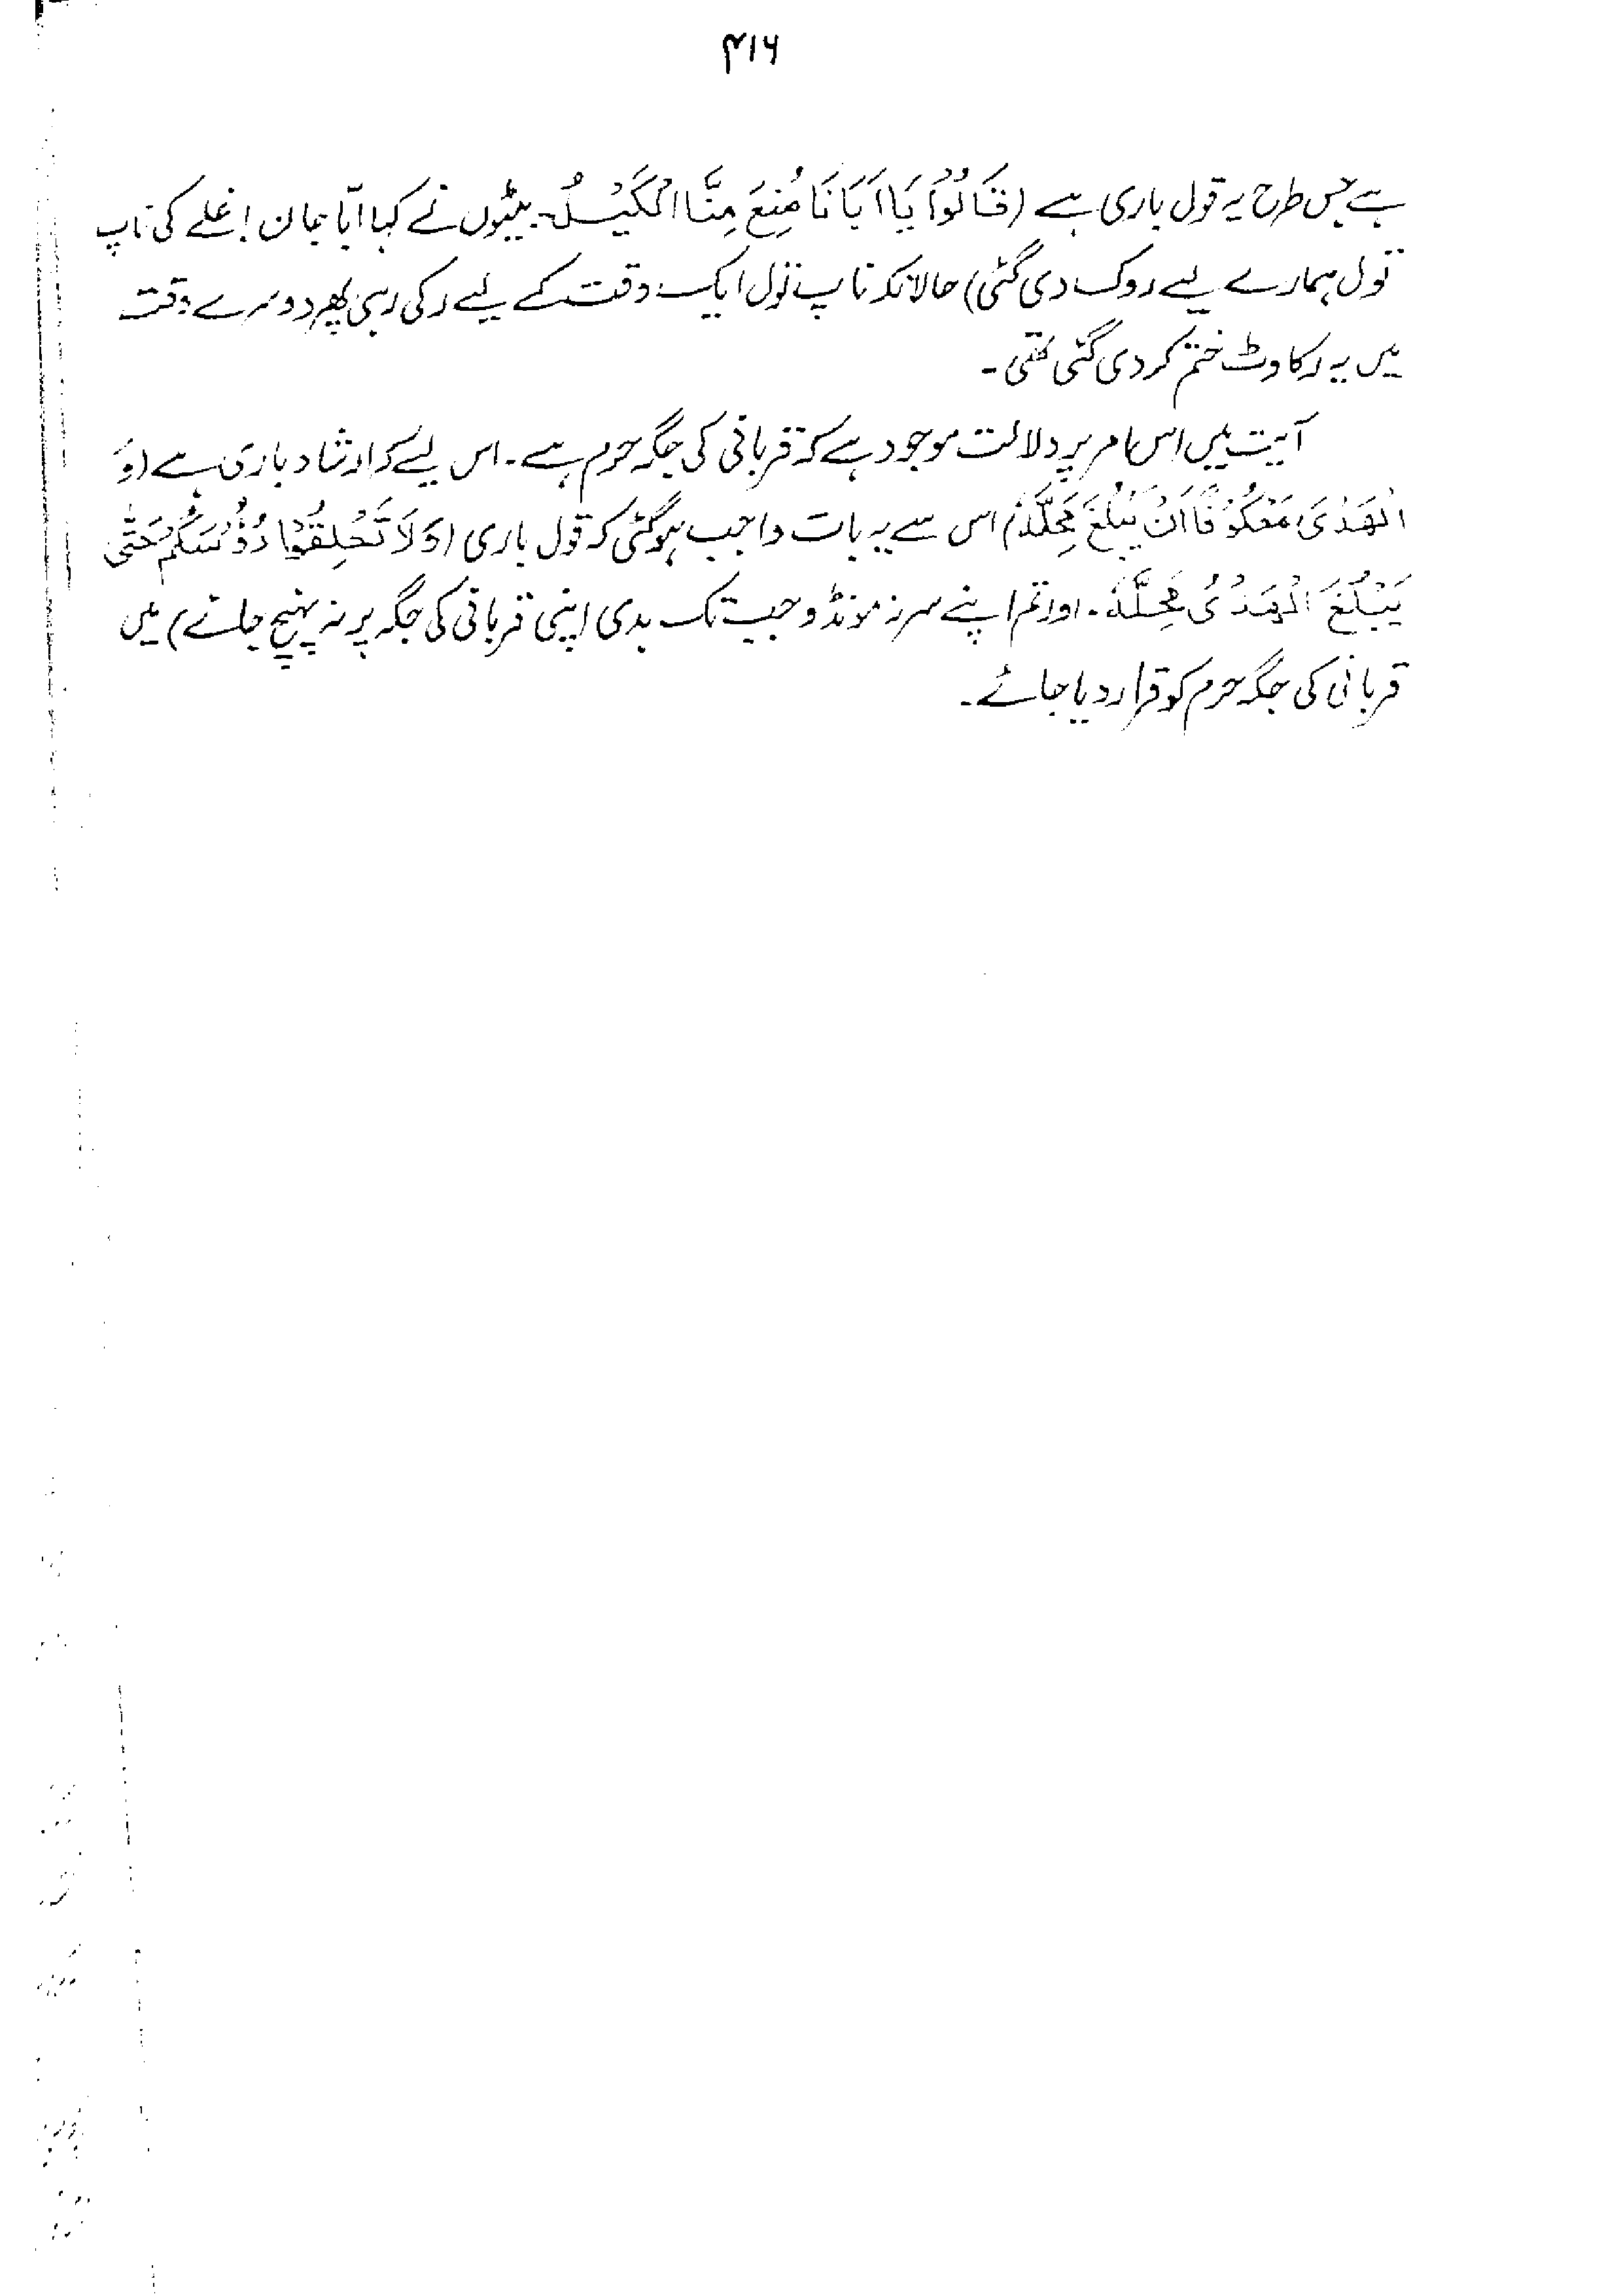 ۴۱۶
ہے جس طرح یہ قول باری ہے (قَالُوْا یَا اَبَانَا مُنِعَ مِنَّا الْکَیْلُ۔ بیٹوں نے کہا ابّا جان! غلے کی ناپ
تول ہمارے لیے روک دی گئی) حالانکہ ناپ تول ایک وقت کے لیے رکی رہی پھر دوسرے وقت
میں یہ رکاوٹ ختم کر دی گئی تھی۔
آیت میں اس امر پر دلالت موجود ہے کہ قربانی کی جگہ حرم ہے۔ اس لیے کہ ارشاد باری ہے (وَ
الْھَدْیَ مَعْکُوْفًا اَنْ یَّبْلُغَ مَحِلَّہٗ) اس سے یہ بات واجب ہوگئی کہ قول باری (وَلَا تَحْلِقُوْا رُؤُسَکُمْ حَتّٰی
یَبْلُغَ الْھَدْیُ مَحِلَّہٗ۔ اور تم اپنے سر نہ مونڈو جب تک ہدی اپنی قربانی کی جگہ پر نہ پہنچ جائے) میں
قربانی کی جگہ حرم کو قرار دیا جائے۔